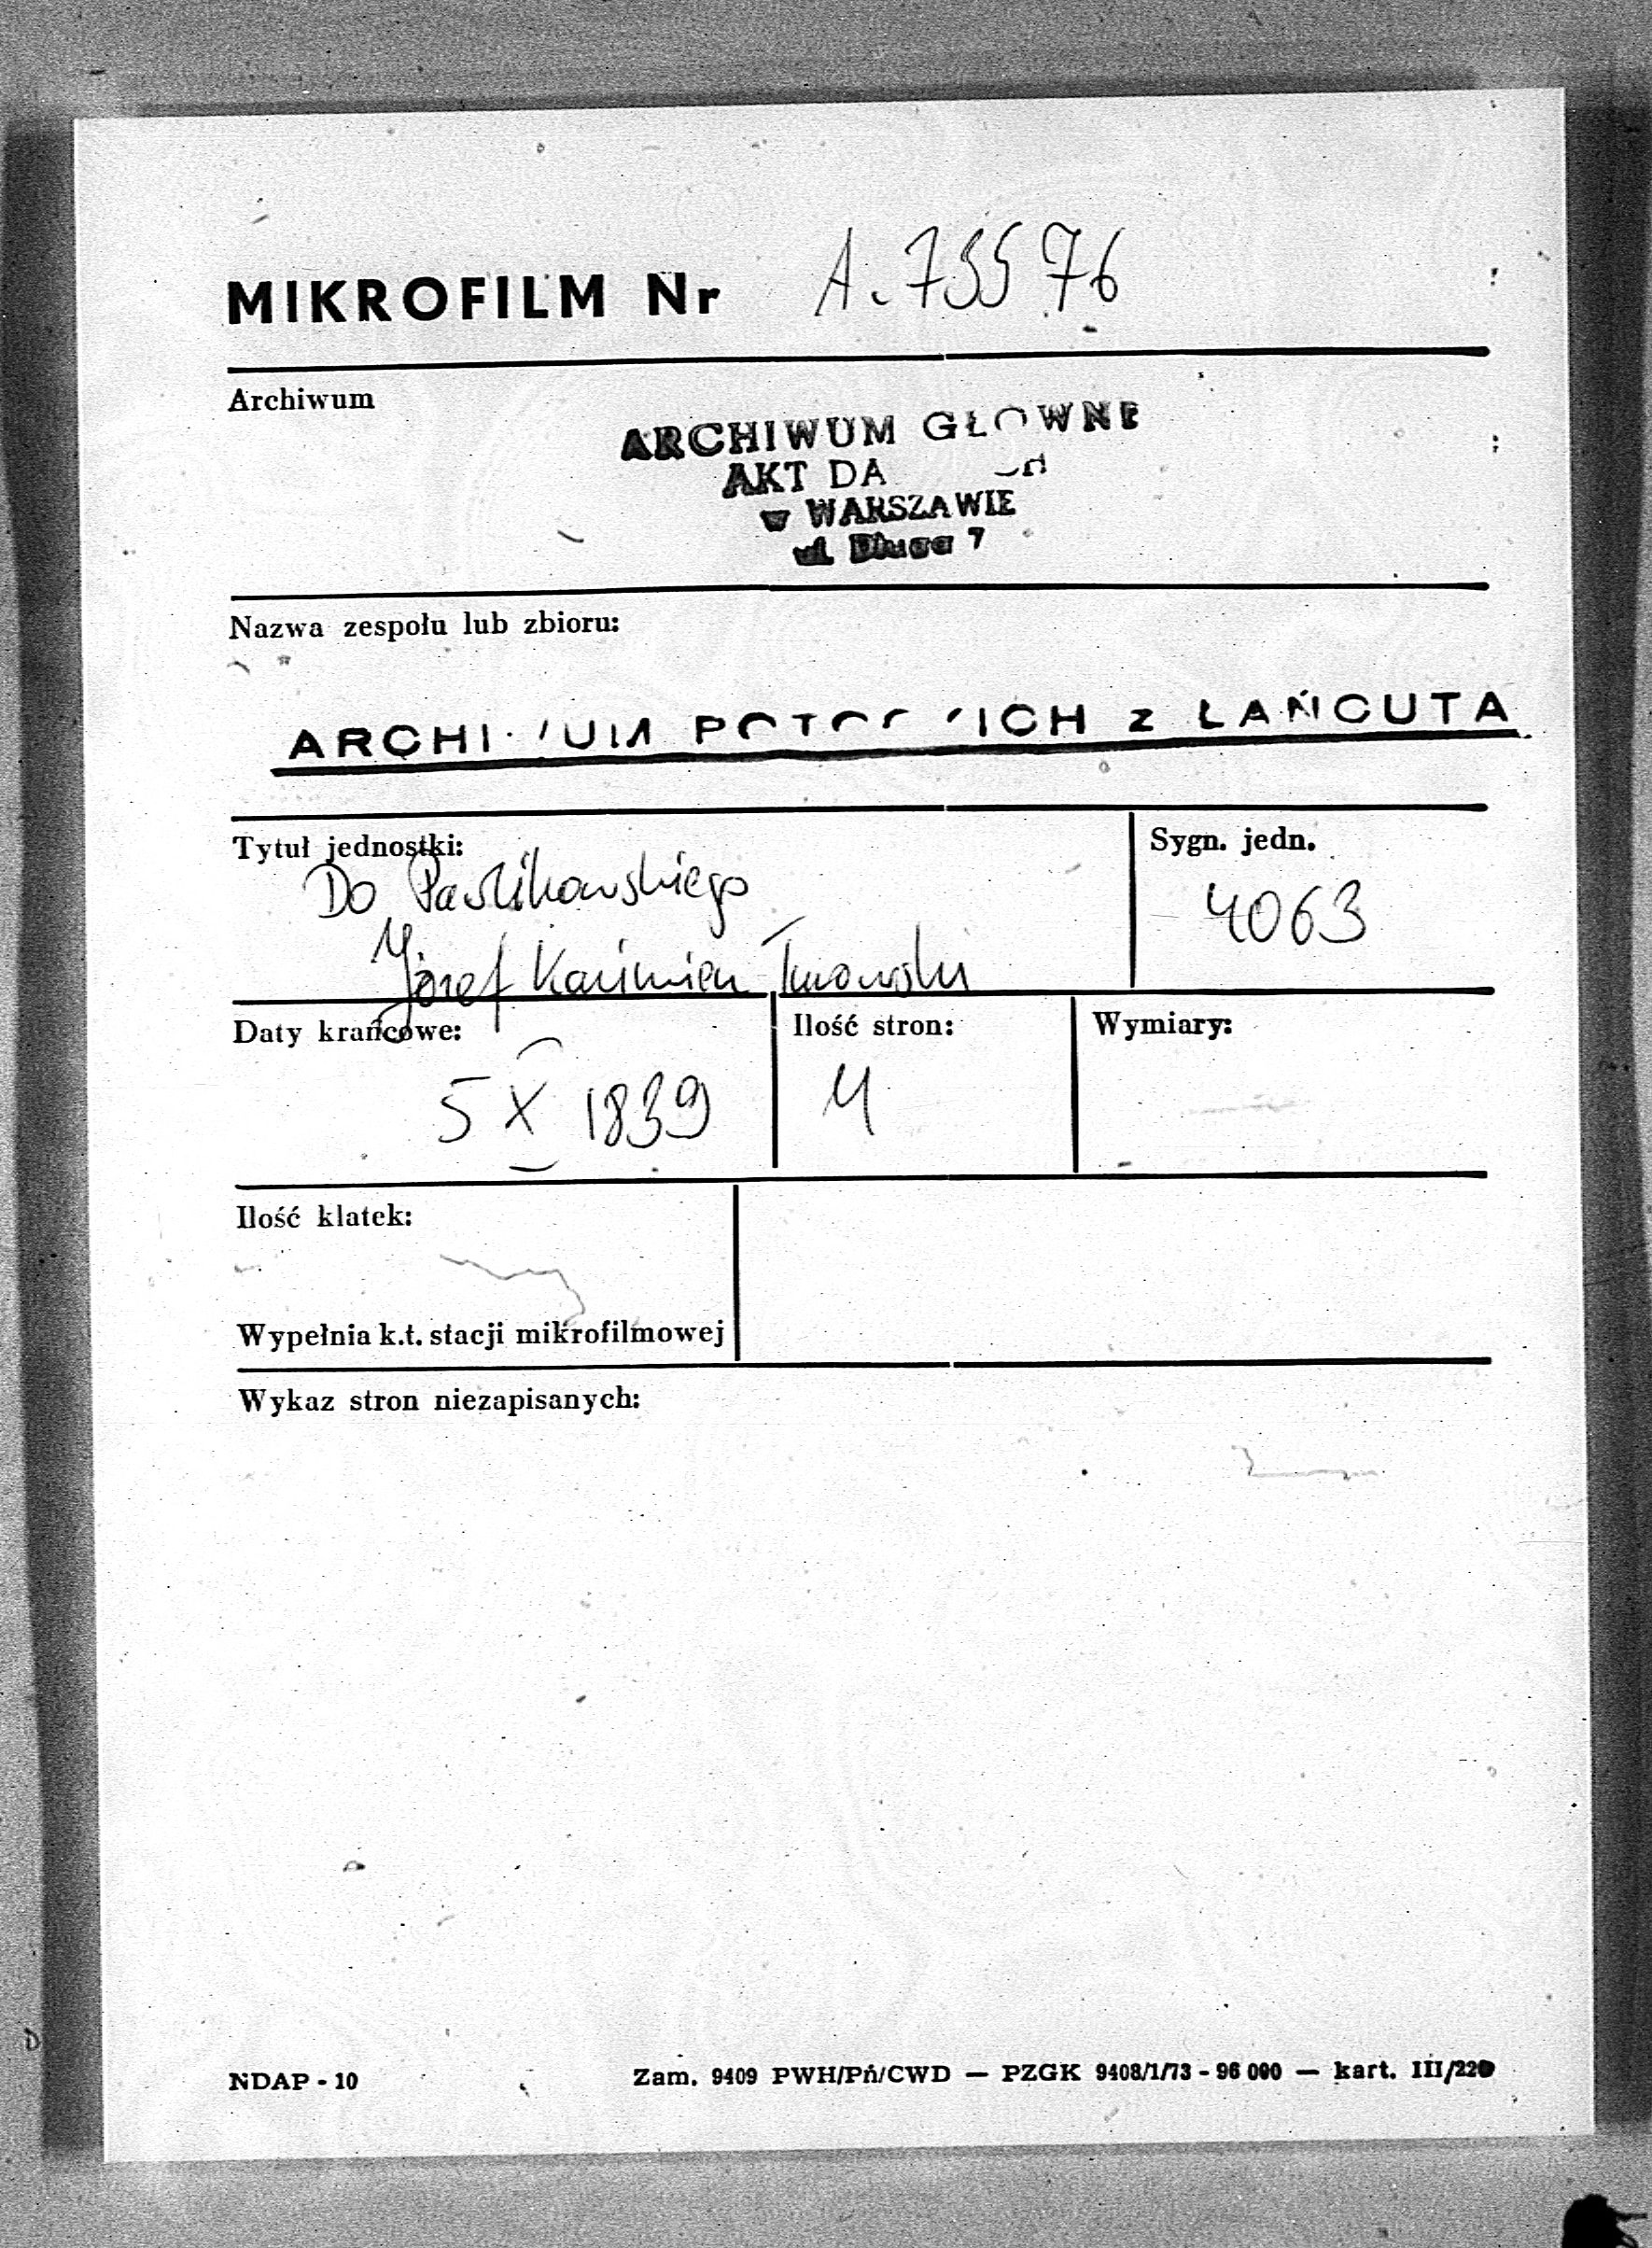 MIKROFILM Nr A. 73576
Archiwum
ARCHIWUM GŁOWNE
AKT DA
w WARSZAWIE
ul. Długa 7
Nazwa zespołu lub zbioru:
ARCHIWUM POTOCKICH z ŁAŃCUTA
Tytuł jednostki:
Sygn. jedn.
Do Pawlikowskiego
4063
Józef Kazimierz Turowski
Daty krańcowe:
Ilość stron:
Wymiary:
5 X 1839
4
Ilość klatek:
Wypełnia k.t. stacji mikrofilmowej
Wykaz stron niezapisanych:
NDAP - 10
Zam. 9409 PWH/Pń/CWD — PZGK 9408/1/73 - 96 000 — kart. III/220